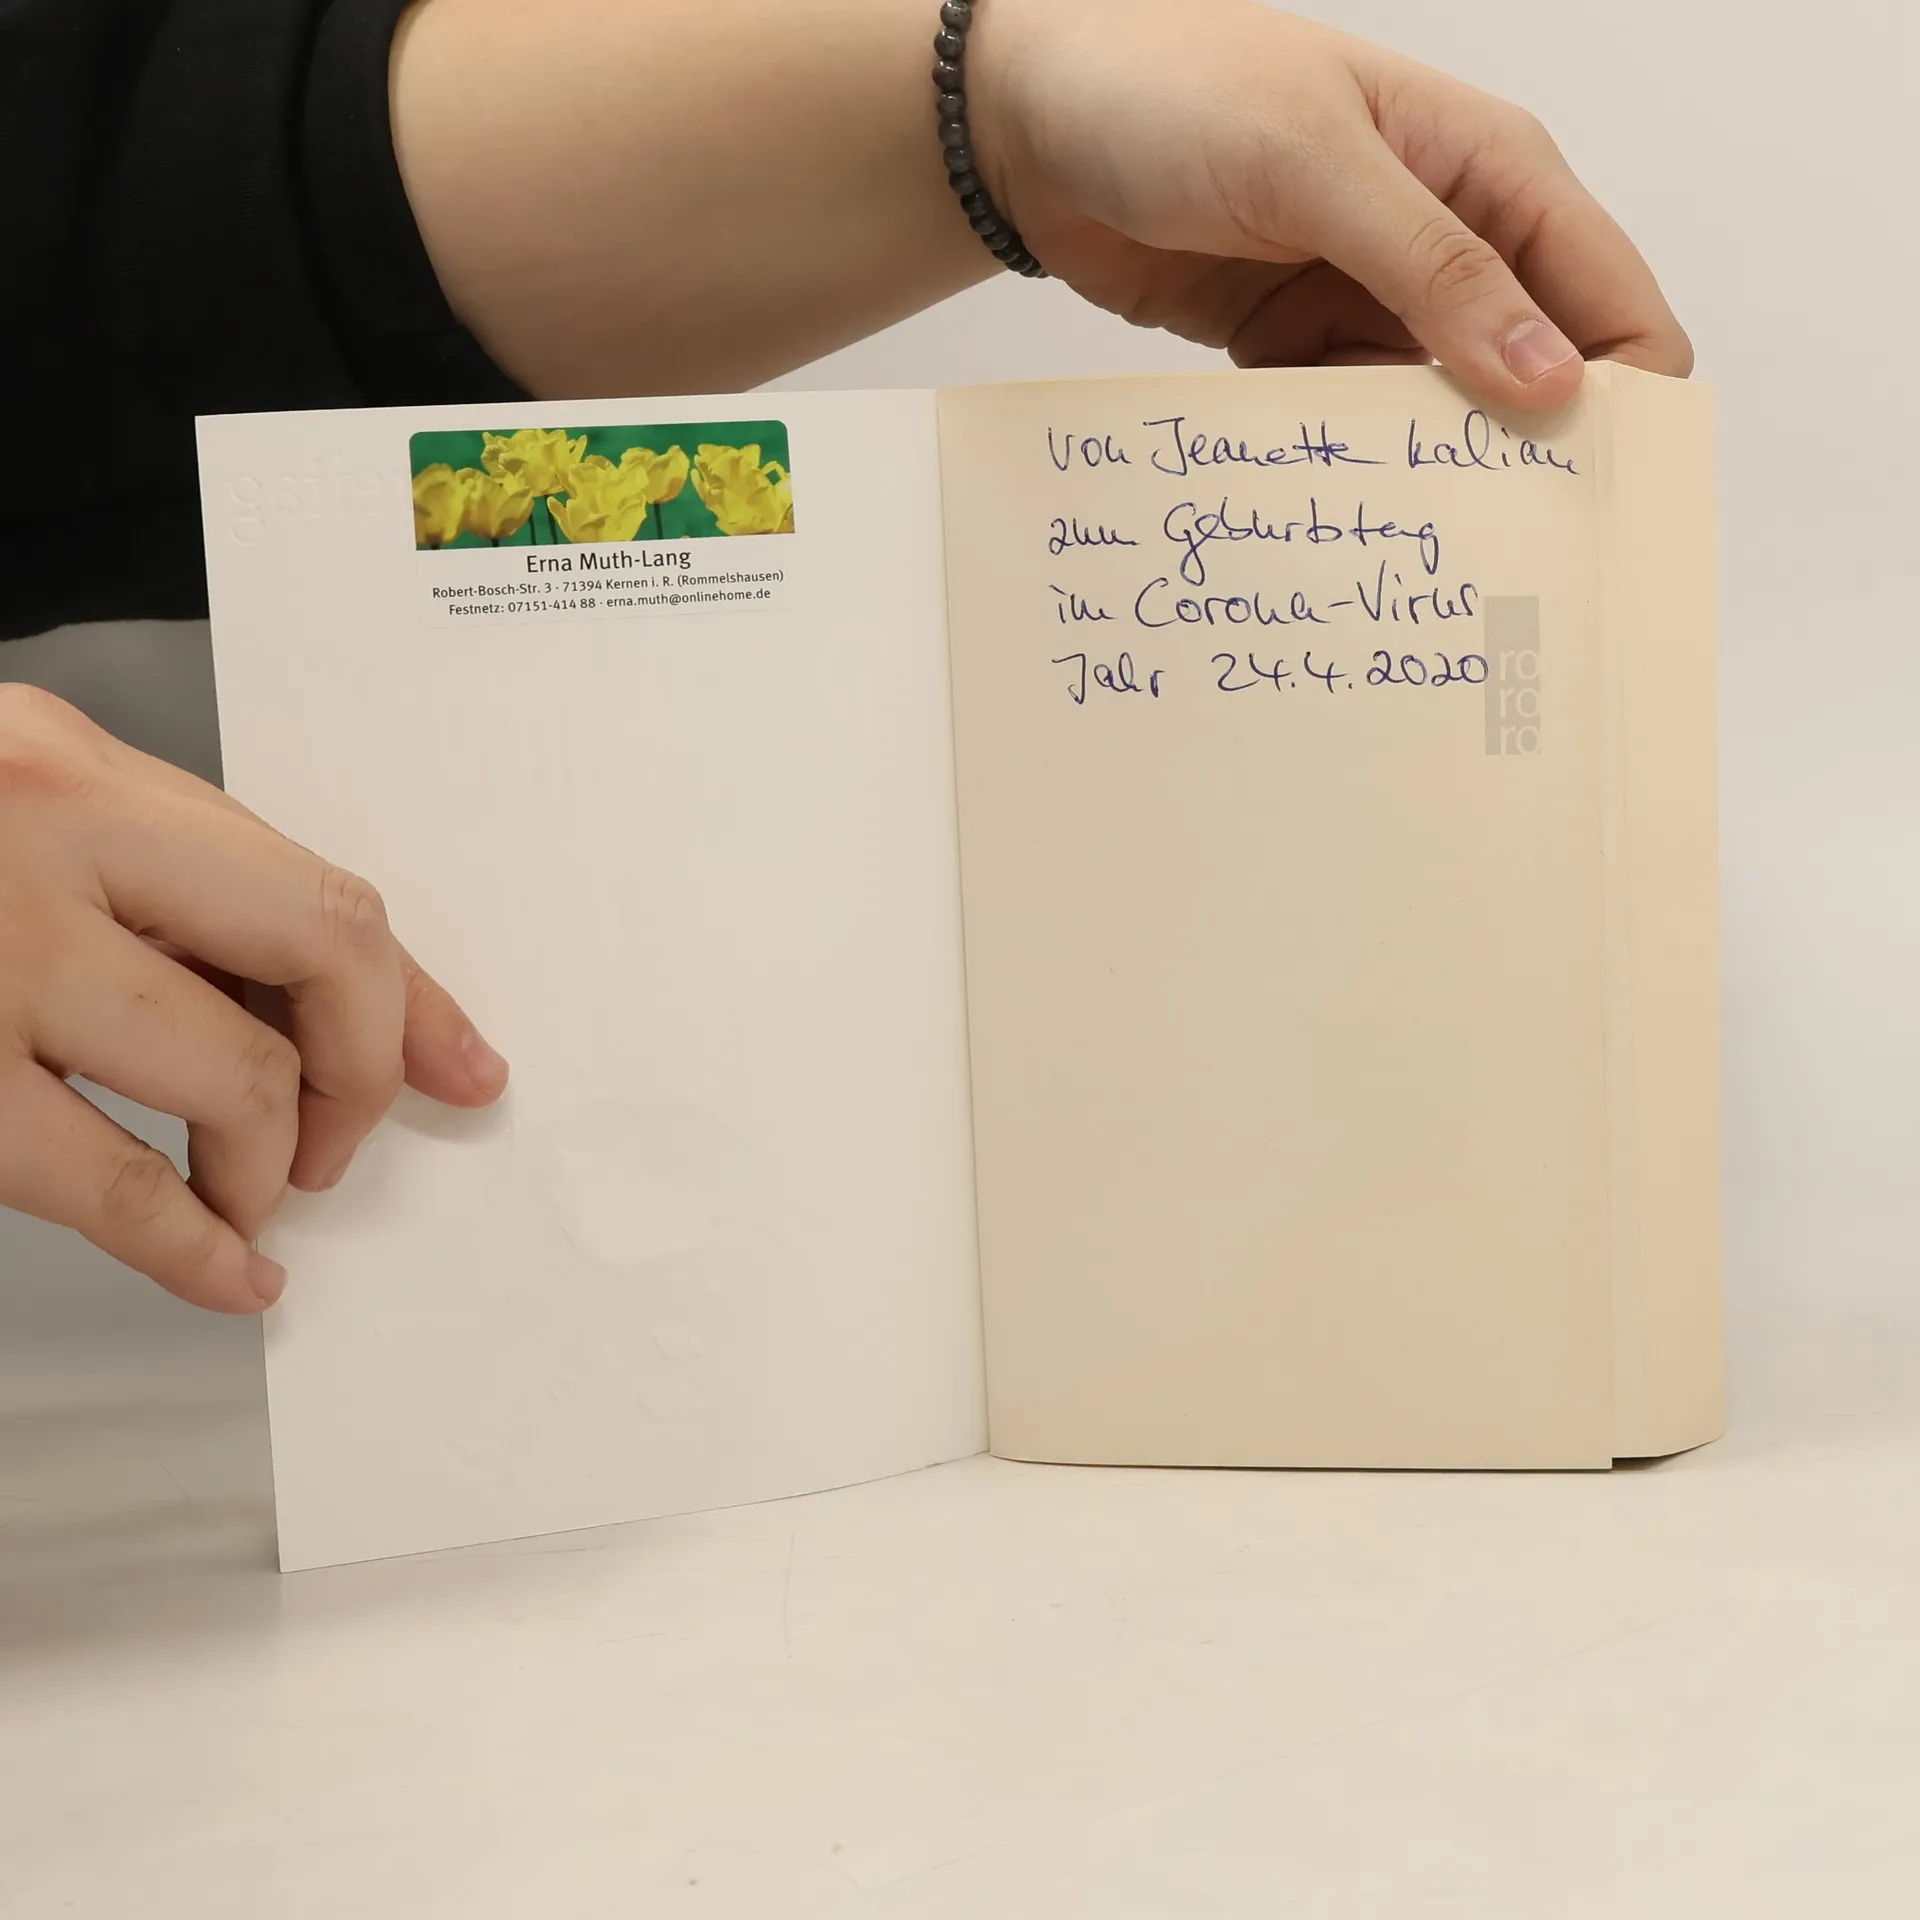 Erna Muth-Lang
Robert-Bosch-Str. 3 · 71394 Kernen i. R. (Rommelshausen)
Festnetz: 07151-414 88 · erna.muth@onlinehome.de
von Jeanette Kalian
zum Geburtstag
im Corona-Virus
Jahr 24.4.2020
ro
ro
ro